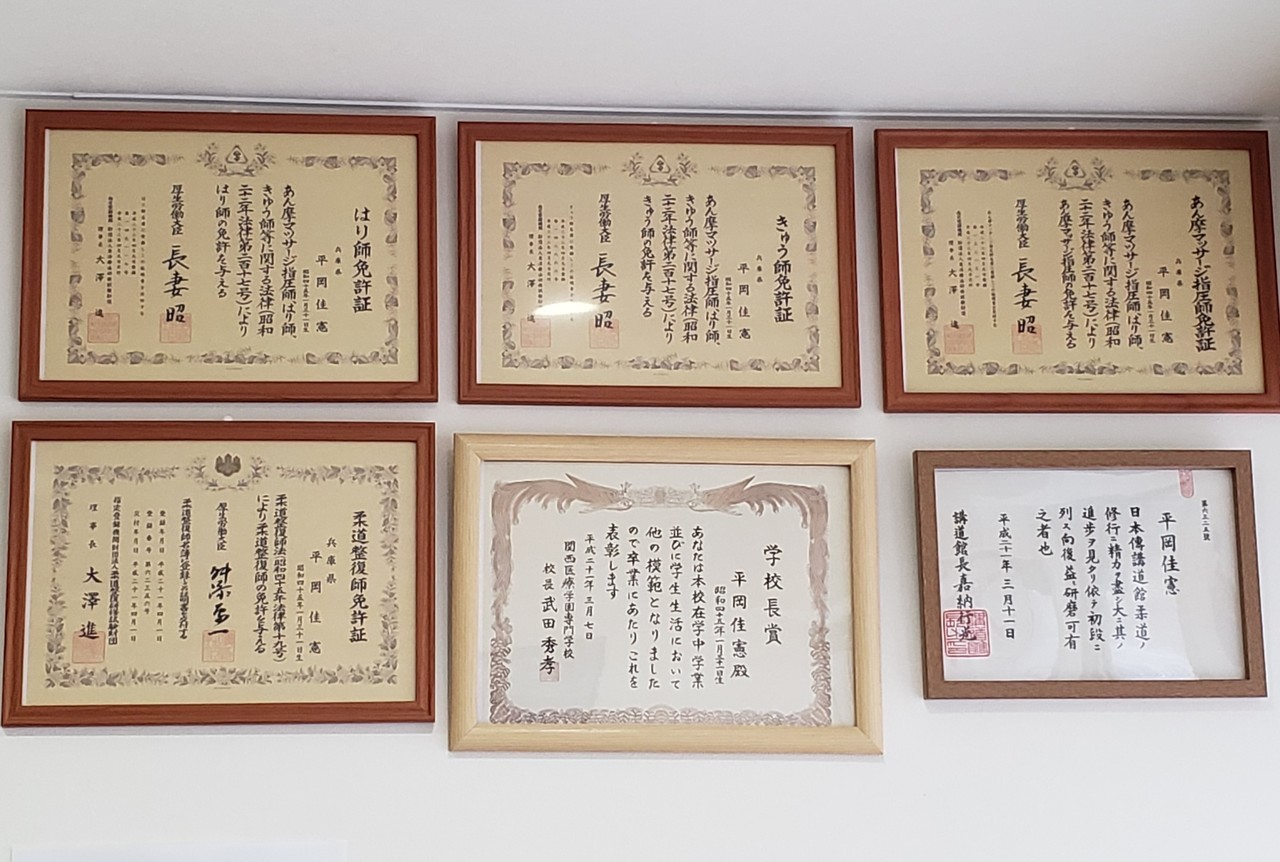 はり師免許証
兵庫県
平岡佳憲
昭和四十五年一月三十一日生
あん摩マツサージ指圧師、はり師、
きゆう師等に関する法律(昭和
二十二年法律第二百十七号)により
はり師の免許を与える
厚生労働大臣 長妻昭
理事長 大澤進
きゆう師免許証
兵庫県
平岡佳憲
昭和四十五年一月三十一日生
あん摩マツサージ指圧師、はり師、
きゆう師等に関する法律(昭和
二十二年法律第二百十七号)により
きゆう師の免許を与える
厚生労働大臣 長妻昭
理事長 大澤進
あん摩マツサージ指圧師免許証
兵庫県
平岡佳憲
昭和四十五年一月三十一日生
あん摩マツサージ指圧師、はり師、
きゆう師等に関する法律(昭和
二十二年法律第二百十七号)により
あん摩マツサージ指圧師の免許を与える
厚生労働大臣 長妻昭
理事長 大澤進
柔道整復師免許証
兵庫県
平岡佳憲
昭和四十五年一月三十一日生
柔道整復師法(昭和四十五年法律第十九号)
により柔道整復師の免許を与える
厚生労働大臣 舛添要一
柔道整復師名簿に登録した証明書を交付する
登録年月日 平成二十一年四月一日
登録番号 第六二三五六号
交付年月日 平成二十一年四月一日
指定登録機関財団法人柔道整復研修試験財団
理事長 大澤進
学校長賞
平岡佳憲殿
昭和四十五年一月三十一日生
あなたは本校在学中学業
並びに学生生活において
他の模範となりました
ので卒業にあたりこれを
表彰します
平成二十一年三月七日
関西医療学園専門学校
校長 武田秀孝
第六三二五號
平岡佳憲
日本傳講道館柔道ノ
修行ニ精力ヲ盡シ大ニ其ノ
進歩ヲ見タリ依テ初段ニ
列ス向後益々研磨可有
之者也
平成二十一年三月十一日
講道館長嘉納行光